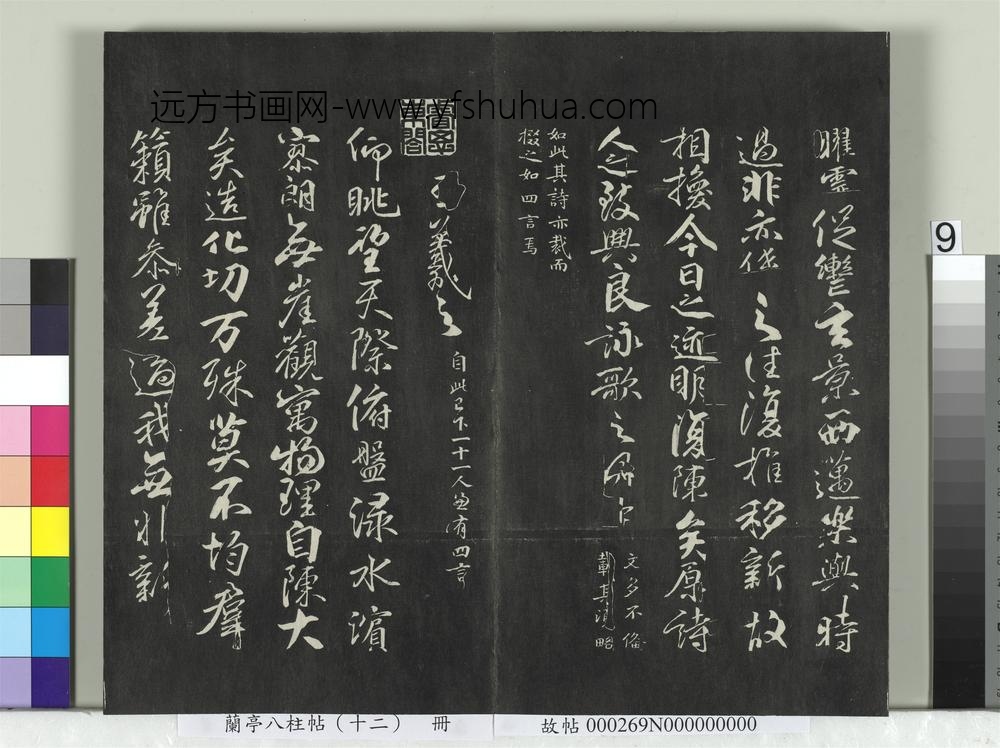 远方书画网-www.yfshuhua.com
曜靈促轡玄景西邁樂與時
過悲亦係之往復推移新故
相換今日之迹明復陳矣原詩
人之致興良詠歌之有由
文多不備
載其大略
如此其詩亦裁而
掇之如四言焉
王羲之
自此已下一十一人並有四言
仰眺望天際俯盤淥水濱
寥朗無崖觀寓物理自陳大
矣造化功万殊莫不均群
籟雖參差適我無非新
9
蘭亭八柱帖（十二） 冊
故帖 000269N000000000